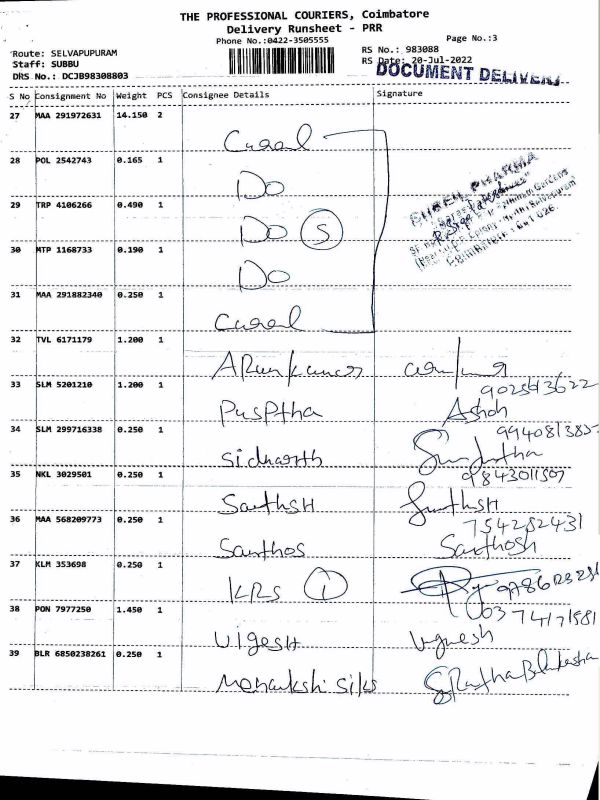 THE PROFESSIONAL COURIERS, Coimbatore
Delivery Runsheet - PRR
Phone No.:0422-3505555
Page No.:3
Route: SELVAPUPURAM
Staff: SUBBU
DRS No.: DCJB98308803
RS No.: 983088
RS Date: 20-Jul-2022
DOCUMENT DELIVERY
S No Consignment No Weight PCS Consignee Details Signature
27 MAA 291972631 14.150 2
28 POL 2542743 0.165 1
Do
29 TRP 4106266 0.490 1
Do S
30 MTP 1168733 0.190 1
Do
31 MAA 291882340 0.250 1
SHREE PHARMA
32 TVL 6171179 1.200 1
Arunkumar
33 SLM 5201210 1.200 1
Pusptha Ashok
34 SLM 299716338 0.250 1
Sidharth
35 NKL 3029501 0.250 1
9843011507
Santhsh
36 MAA 568209773 0.250 1
754282431
Santhos Santhosh
37 KLM 353698 0.250 1
KRS 1
38 PON 7977250 1.450 1
Vigesh Vignesh
39 BLR 6850238261 0.250 1
Menakshi silks